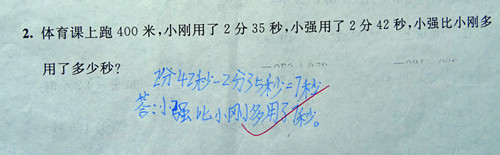 2. 体育课上跑 400 米,小刚用了 2 分 35 秒,小强用了 2 分 42 秒,小强比小刚多
用了多少秒?
2分42秒-2分35秒=7秒
答:小强比小刚多用了7秒。